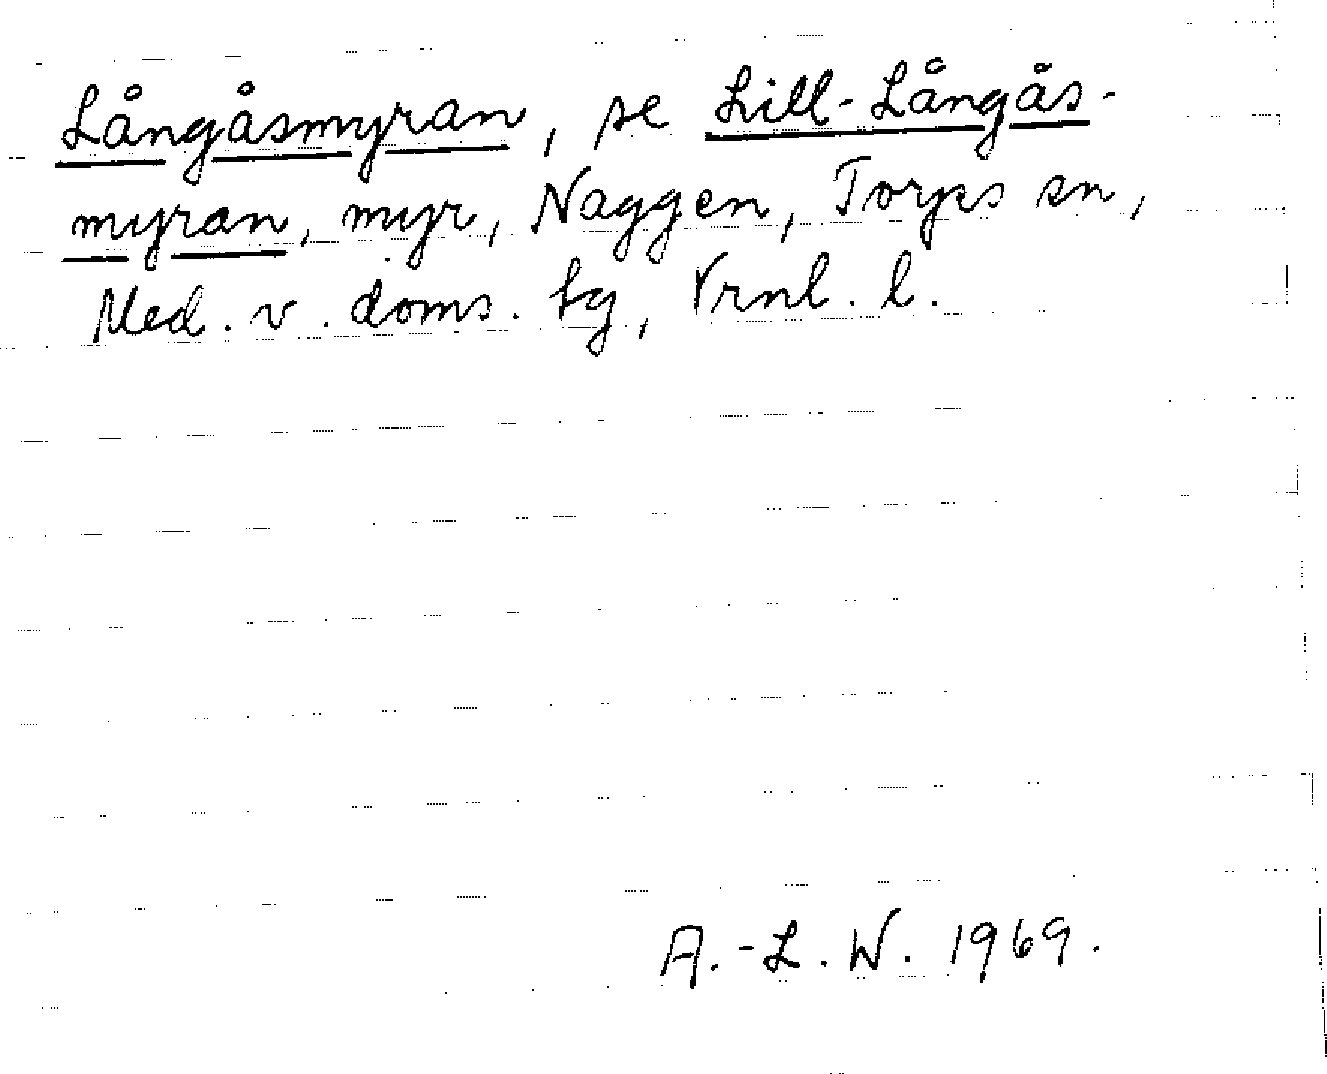 Långåsmyran, se Lill-Långås-
myran, myr, Naggen, Torps sn,
Med. v. doms. tg, Vrnl. l.
A.-L. W. 1969.